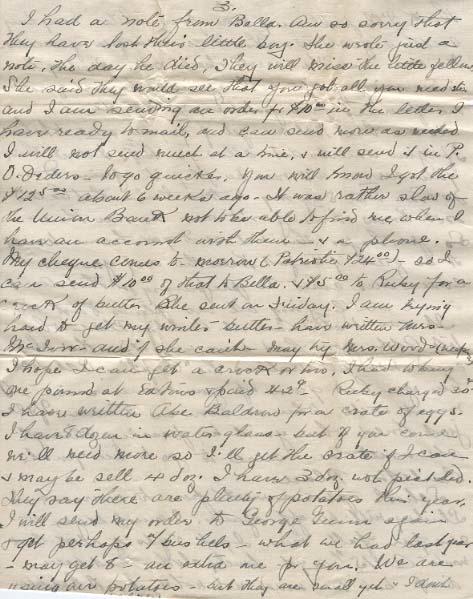 3.
I had a note from Bella. Am so sorry that
they have lost their little boy. She wrote just a
note, the day he died, They will miss the little fellow
She said they would see that you got all you needed
and I am sending an order for $10.00 in the letter I
have ready to mail, and can send more as needed
I will not send much at a time, & will send it in P.
O. Orders to go quicker. You will know I got the
$125.00 about 6 weeks ago. It was rather slow of
the Union Bank not to be able to find me when I
have an account with them - & a phone.
My cheque comes to morrow (Patriotic $24.00) so I
can send $10.00 of that to Bella & $5.00 to for a
crock of butter she sent on Friday. I am trying
hard to get my winter butter - have written Mrs.
and if she can't may try Mrs. Wood
I hope I can get a crock or two, I had to buy
one pound at Eatons & paid 42¢ - charged 30
I have written Abe Baldwin for a crate of eggs.
I have 8 dozen in water glass - but if you come
we'll need more so I'll get the crate if I can
& maybe sell 4 doz. I have 3 doz not pickled.
They say there are plenty of potatoes this year,
I will send my order to George again
& get perhaps 7 bushels - what we had last year
- may get 8 - an extra one for you. We are
using our potatoes - but they are small yet & I don't